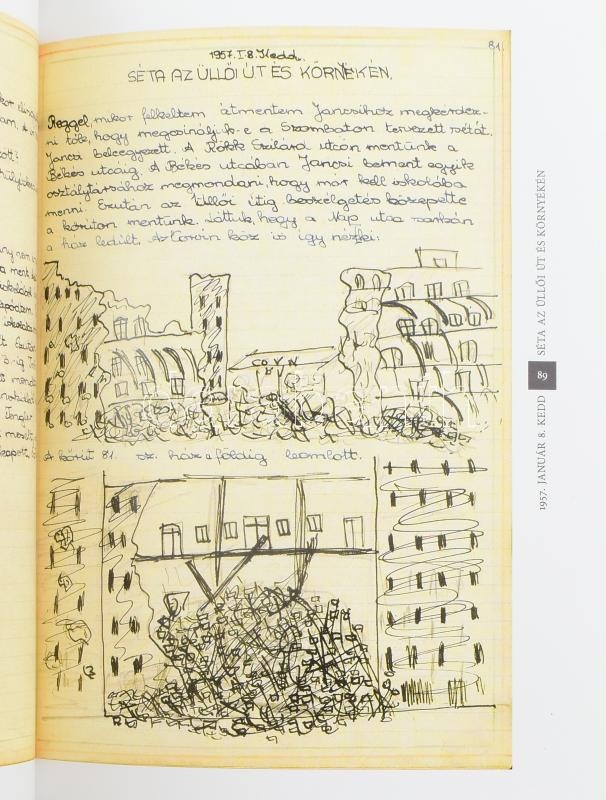 81.
1957. I. 8. Kedd.
SÉTA AZ ÜLLŐI ÚT ÉS KÖRNYÉKÉN.
Reggel, mikor felkeltem átmentem Jancsihoz megkérdez-
ni tőle, hogy megcsináljuk-e a Szombaton tervezett sétát.
Jancsi beleegyezett. A Rökk Szilárd utcán mentünk a
Békés utcáig. A Békés utcában Jancsi bement egyik
osztálytársához megmondani, hogy már kell iskolába
menni. Ezután az Üllői útig beszélgetés közepette
a körúton mentünk. Láttuk, hogy a Nap utca sarkán
a ház ledűlt. Az Corvin köz is így nézki:
CO V N
A körút 81. sz. háza földig leomlott.
1957. JANUÁR 8. KEDD 89 SÉTA AZ ÜLLŐI ÚT ÉS KÖRNYÉKÉN